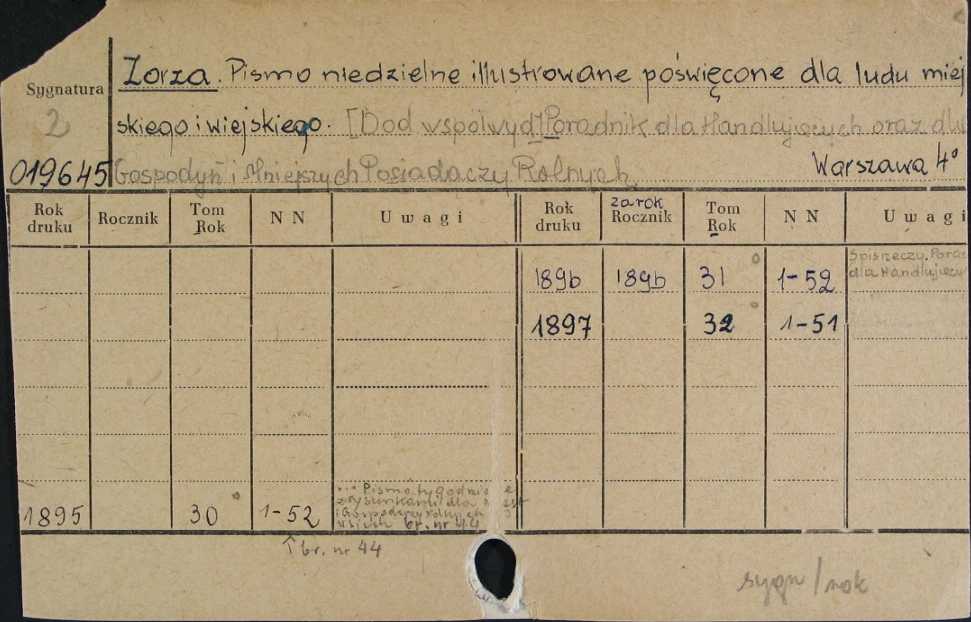 Sygnatura
2
019645
Zorza. Pismo niedzielne illustrowane poświęcone dla ludu miej
skiego i wiejskiego. [Dod współwyd] Poradnik dla Handlujących oraz dla
Gospodyń i Mniejszych Posiadaczy Rolnych
Warszawa 4°
Rok druku Rocznik Tom Rok NN Uwagi Rok druku za rok Rocznik Tom Rok NN Uwagi
1896 1896 31 1-52 Spis rzeczy. Porad
dla Handlujących
1897 32 1-51
1895 30 1-52 ... Pismo tygodnio
z rysunkami dla
i Gospodyń
br. nr 44
↑ br. nr 44
sygn/rok